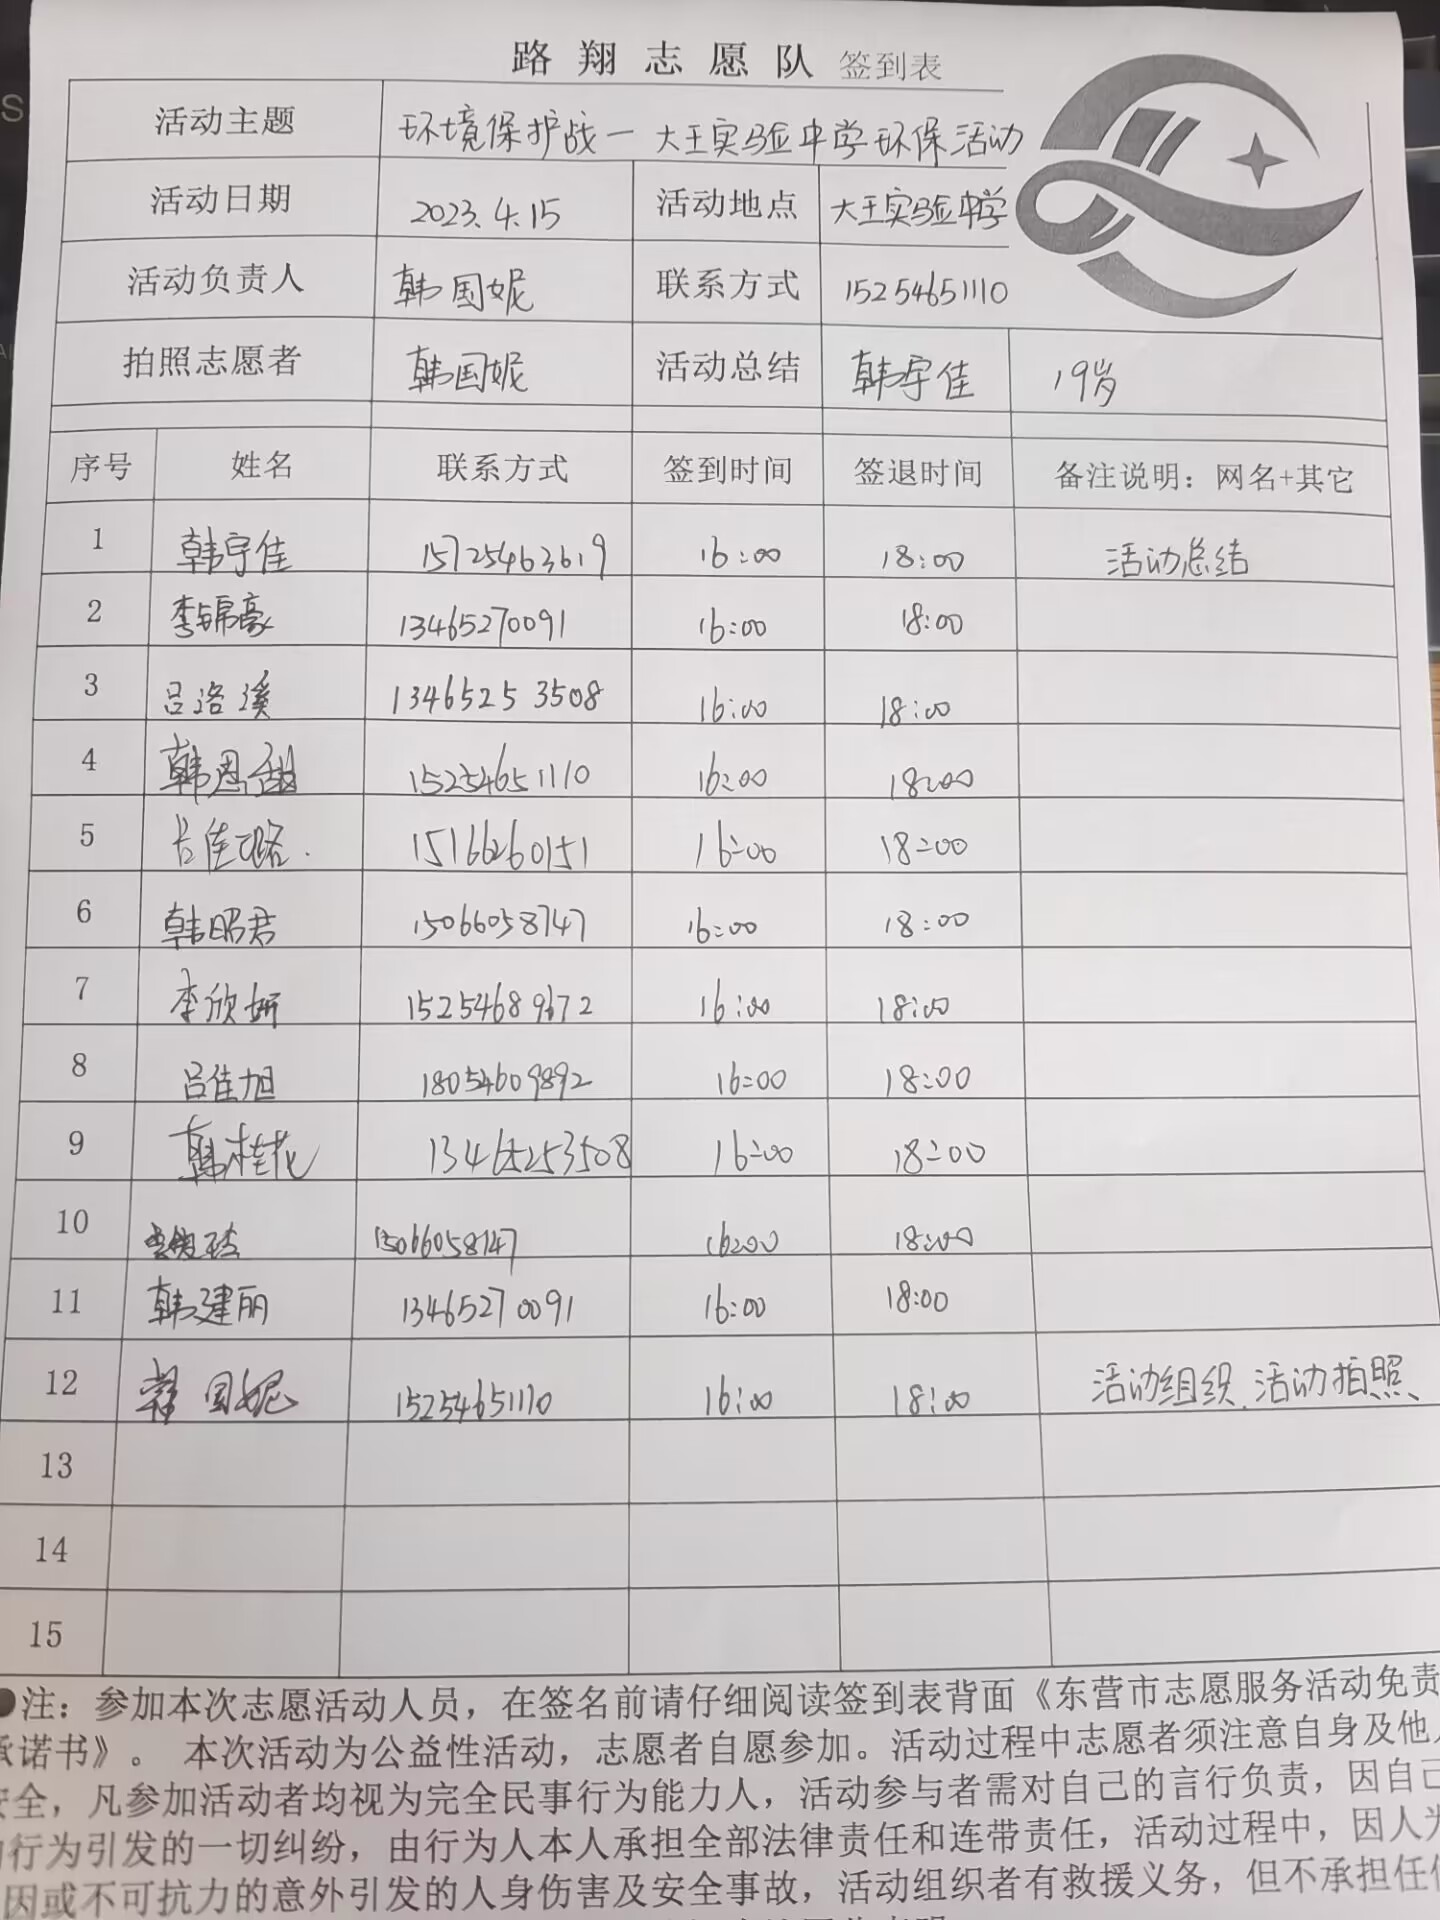 路翔志愿队 签到表
活动主题 环境保护战一大王实验中学环保活动
活动日期 2023.4.15 活动地点 大王实验中学
活动负责人 韩国妮 联系方式 15254651110
拍照志愿者 韩国妮 活动总结 韩宇佳 19岁
序号 姓名 联系方式 签到时间 签退时间 备注说明：网名+其它
1 韩宇佳 15725463619 16:00 18:00 活动总结
2 李锦豪 13465270091 16:00 18:00
3 吕洛溪 13465253508 16:00 18:00
4 韩恩甜 15254651110 16:00 18:00
5 佳璐 15166260151 16:00 18:00
6 韩昭君 15066058747 16:00 18:00
7 李欣妍 15254689672 16:00 18:00
8 吕佳旭 18054609892 16:00 18:00
9 韩桂花 13465253508 16:00 18:00
10 16:00 18:00
11 韩建丽 13465270091 16:00 18:00
12 韩国妮 15254651110 16:00 18:00 活动组织、活动拍照
13
14
15
●注：参加本次志愿活动人员，在签名前请仔细阅读签到表背面《东营市志愿服务活动免责
承诺书》。 本次活动为公益性活动，志愿者自愿参加。活动过程中志愿者须注意自身及他
安全，凡参加活动者均视为完全民事行为能力人，活动参与者需对自己的言行负责，因自己
行为引发的一切纠纷，由行为人本人承担全部法律责任和连带责任，活动过程中，因人为
因或不可抗力的意外引发的人身伤害及安全事故，活动组织者有救援义务，但不承担任